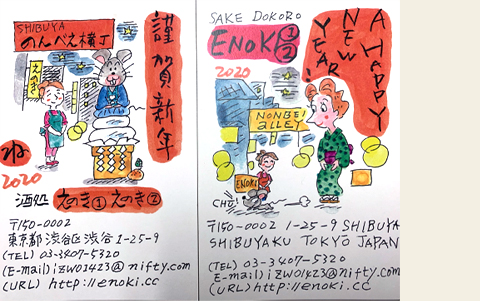 SHIBUYA
のんべえ横丁
謹賀新年
えのき
ね
2020
酒処 えのき① えのき②
〒150-0002
東京都渋谷区渋谷 1-25-9
(TEL) 03-3407-5320
(E-mail) izw01423@nifty.com
(URL) http://enoki.cc
SAKE DOKORO
ENOKI ① ②
2020
A HAPPY
NEW
YEAR!
NONBEI
ALLEY
ENOKI
CHU
〒150-0002 1-25-9 SHIBUYA
SHIBUYAKU TOKYO JAPAN
(TEL) 03-3407-5320
(E-mail) izw01423@nifty.com
(URL) http://enoki.cc